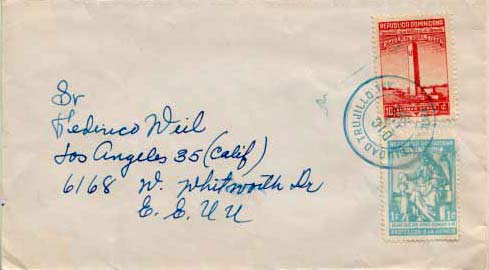 Sr
Federico Weil
Los Angeles 35 (Calif)
6168 W. Whitworth Dr
E. E. U U
REPUBLICA DOMINICANA
10
CIUDAD TRUJILLO
REPUBLICA DOMINICANA
1c 1c